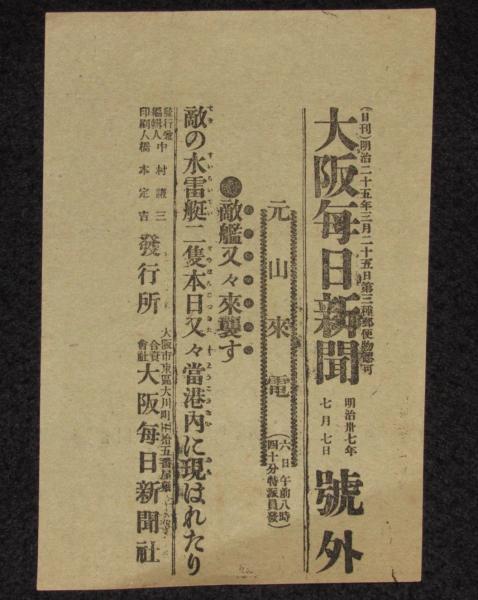 (日刊)明治二十五年三月二十五日第三種郵便物認可
大阪每日新聞 明治卅七年七月七日 號外
元山來電 (六日午前八時四十分特派員發)
敵艦又々來襲す
敵の水雷艇二隻本日又々當港內に現はれたり
發行兼編輯人 中村謙三
印刷人 橋本定吉
發行所 大阪市東區大川町 合資會社 大阪每日新聞社